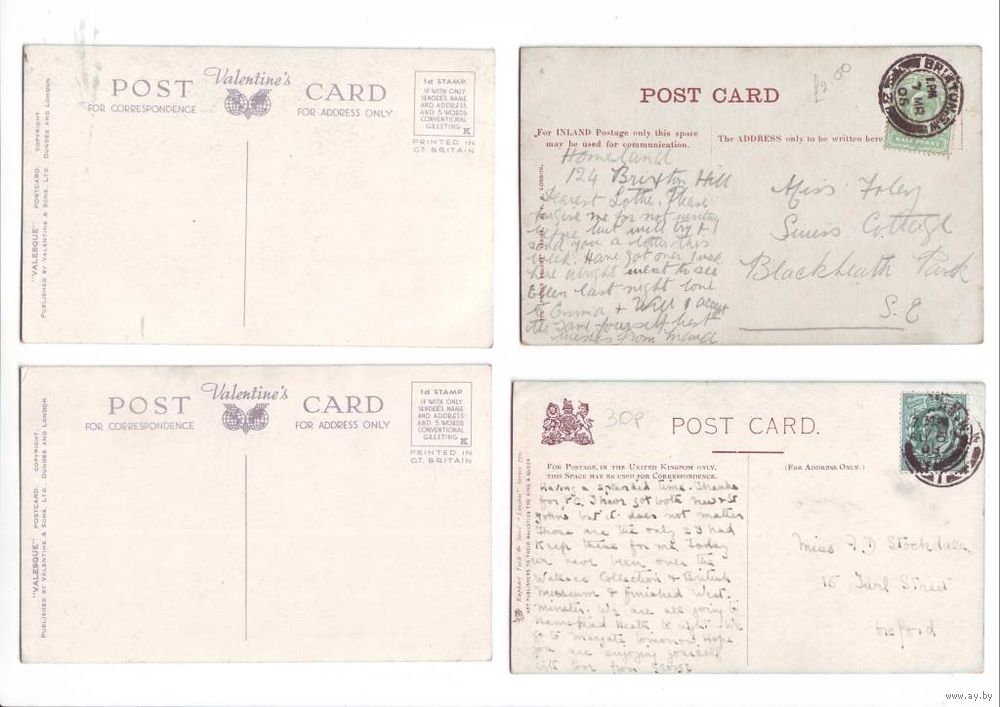 POST Valentine's CARD
FOR CORRESPONDENCE FOR ADDRESS ONLY
1d STAMP
IF WITH ONLY
SENDER'S NAME
AND ADDRESS
AND 5 WORDS
CONVENTIONAL
GREETING
K
PRINTED IN
GT. BRITAIN
"VALESQUE" POSTCARD. COPYRIGHT.
PUBLISHED BY VALENTINE & SONS, LTD. DUNDEE AND LONDON
POST CARD
£2.00
For INLAND Postage only this space
may be used for communication.
The ADDRESS only to be written here
HALFPENNY
Homeland
124 Brixton Hill
Dearest Please
forgive me for not
but will try & 
send you a letter this
week. Have got over 
here alright went to see
last night love
to Emma & Will & accept
the same yourself best
wishes from Maud
Miss Foley
Swiss Cottage
Blackheath Park
S.E
POST Valentine's CARD
FOR CORRESPONDENCE FOR ADDRESS ONLY
1d STAMP
IF WITH ONLY
SENDER'S NAME
AND ADDRESS
AND 5 WORDS
CONVENTIONAL
GREETING
K
PRINTED IN
GT. BRITAIN
"VALESQUE" POSTCARD. COPYRIGHT.
PUBLISHED BY VALENTINE & SONS, LTD. DUNDEE AND LONDON
30p
POST CARD.
FOR POSTAGE, IN THE UNITED KINGDOM ONLY,
THIS SPACE MAY BE USED FOR CORRESPONDENCE.
(FOR ADDRESS ONLY.)
Raphael Tuck & Sons' "London" Series
ART PUBLISHERS TO THEIR MAJESTIES THE KING & QUEEN
Having a splendid time. Thanks
for P.C. I have got both New & St
John's, but it does not matter
Those are the only 2 I had
Keep these for me. Today
we have been over the
Wallace Collection & British
Museum & finished West-
minster. We are all going to
Hampstead Heath to night. We
go to Margate tomorrow. Hope
you are enjoying yourself
with love from George
Miss F. D Stockdale
15 Turl Street
Oxford
www.ay.by